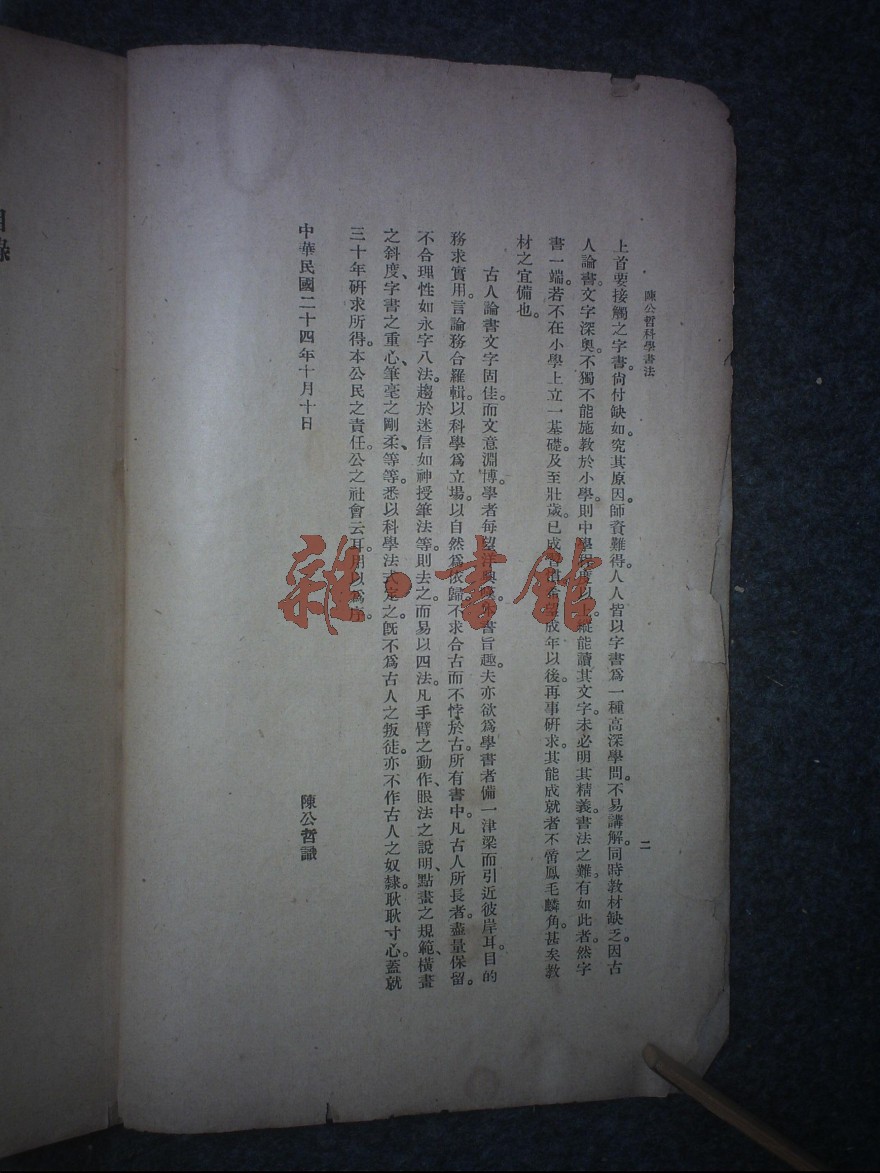 陳公哲科學書法
二
上首要接觸之字書。尙付缺如。究其原因。師資難得。人人皆以字書爲一種高深學問。不易講解。同時教材缺乏。因古
人論書。文字深奧。不獨不能施教於小學。則中學程度以上。縱能讀其文字。未必明其精義。書法之難。有如此者。然字
書一端。若不在小學上立一基礎。及至壯歲。已成 成年以後。再事研求。其能成就者。不啻鳳毛麟角。甚矣教
材之宜備也。
古人論書文字固佳。而文意淵博。學者每望洋興 書旨趣。夫亦欲爲學書者備一津梁而引近彼岸耳。目的
務求實用。言論務合羅輯。以科學爲立場。以自然爲依歸。不求合古而不悖於古。所有書中。凡古人所長者。盡量保留。
不合理性如永字八法。趨於迷信如神授筆法等。則去之。而易以四法。凡手臂之動作、眼法之說明、點畫之規範、橫畫
之斜度、字書之重心、筆毫之剛柔、等等。悉以科學法式定之。旣不爲古人之叛徒。亦不作古人之奴隸。耿耿寸心。蓋就
三十年硏求所得。本公民之責任。公之社會云耳。用以爲序。
中華民國二十四年十月十日
陳公哲識
目錄
雜書館